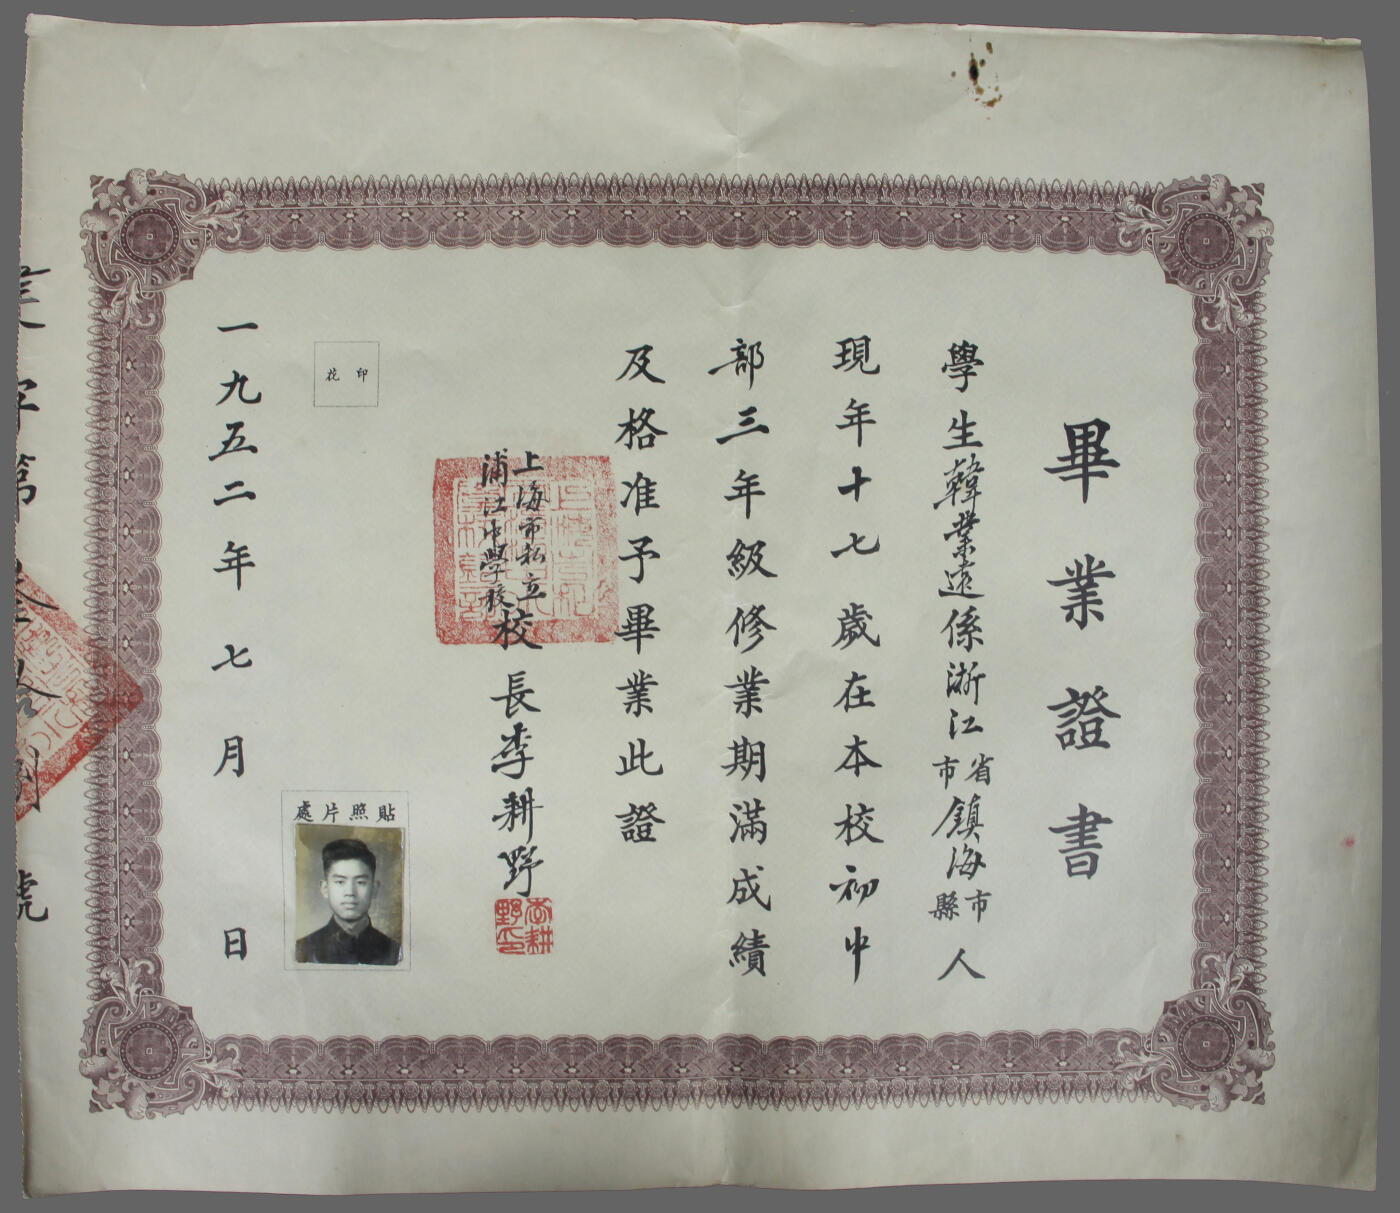 畢業證書
學生韓業遠係浙江省市鎮海市縣人
現年十七歲在本校初中
部三年級修業期滿成績
及格准予畢業此證
上海市私立
浦江中學校
校長李耕野
李耕
野印
印花
貼照片處
一九五二年七月日